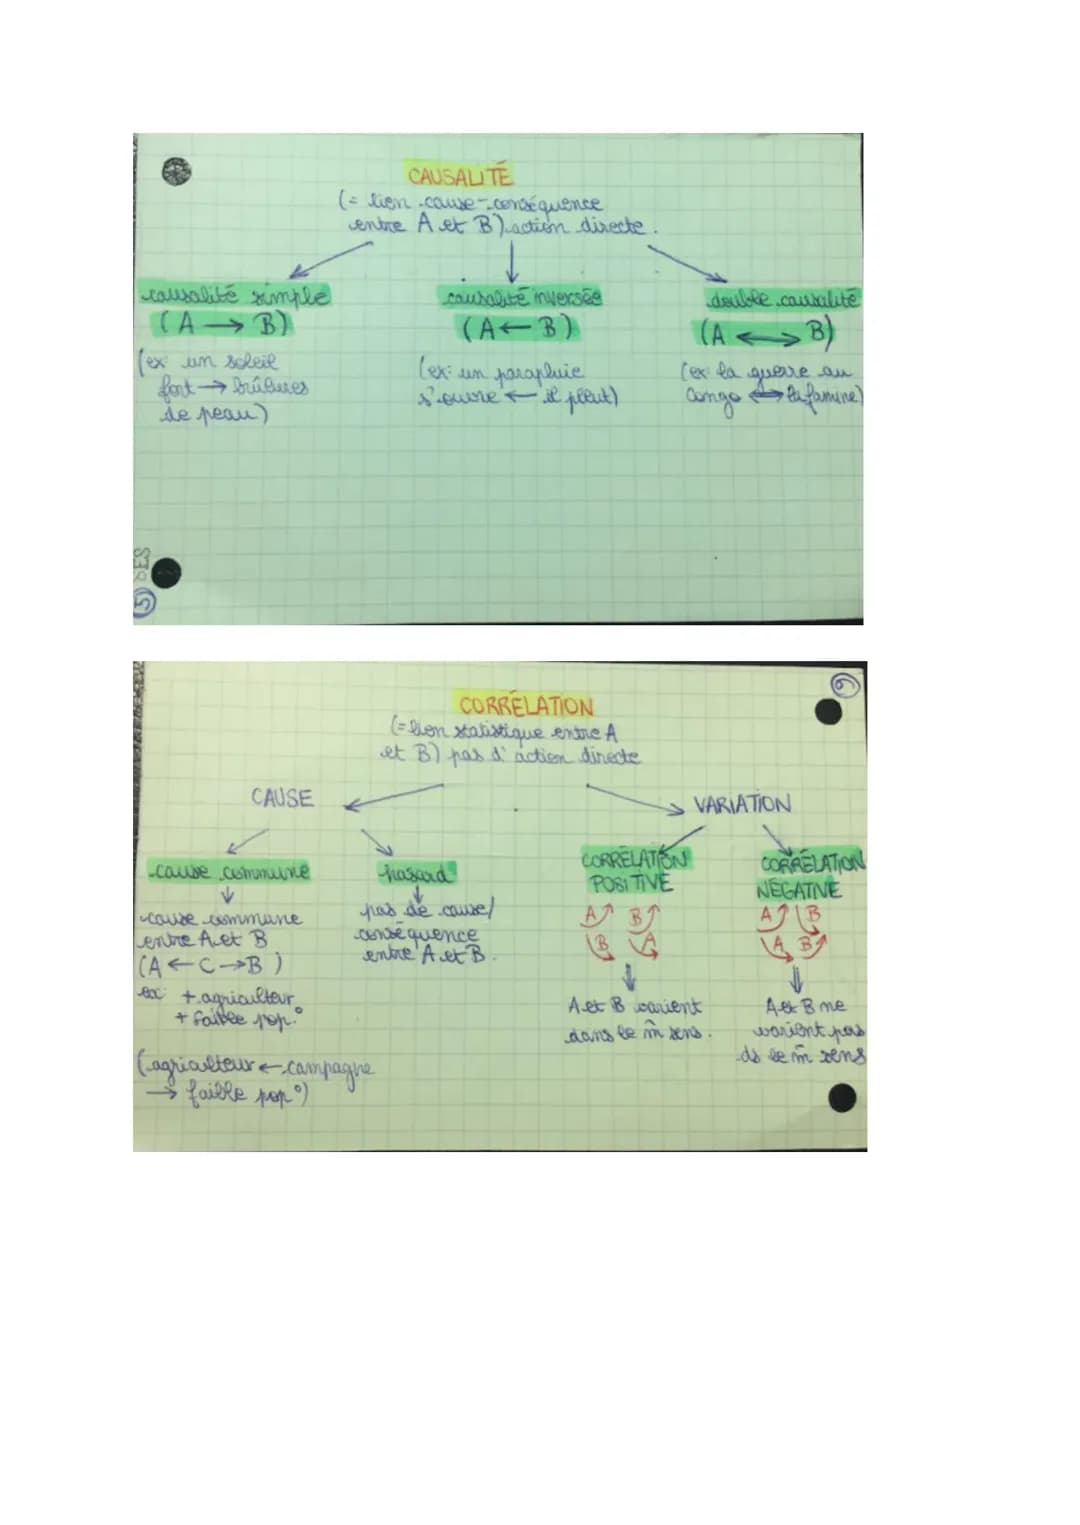 CAUSALITÉ
(= lien cause-conséquence
entre A et B) action directe.
causalité simple
(A → B)
(ex: un soleil
fort → brûlures
de peau)
causalité inversée
(A ← B)
(ex: un parapluie
s'ouvre ← il pleut)
double causalité
(A ↔ B)
(ex: la guerre au
Congo ↔ la famine)
5 SES
6
CORRÉLATION
(= lien statistique entre A
et B) pas d'action directe
CAUSE
VARIATION
cause commune
↓
cause commune
entre A et B
(A ← C → B)
ex: + agriculteur
+ faible pop°
(agriculteur ← campagne
→ faible pop°)
hasard
pas de cause/
conséquence
entre A et B.
CORRÉLATION
POSITIVE
A B
B A
A et B varient
dans le m̂ sens.
CORRÉLATION
NÉGATIVE
A B
A B
A et B ne
varient pas
ds le m̂ sens